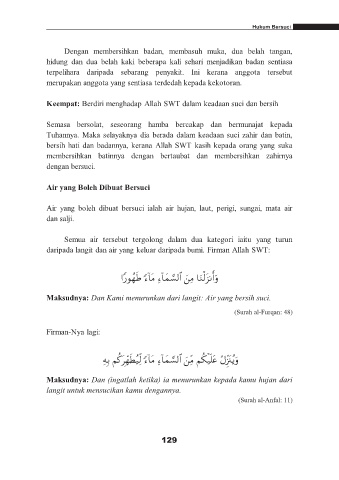 Hukum Bersuci
Dengan membersihkan badan, membasuh muka, dua belah tangan,
hidung dan dua belah kaki beberapa kali sehari menjadikan badan sentiasa
terpelihara daripada sebarang penyakit. Ini kerana anggota tersebut
merupakan anggota yang sentiasa terdedah kepada kekotoran.
Keempat: Berdiri menghadap Allah SWT dalam keadaan suci dan bersih
Semasa bersolat, seseorang hamba bercakap dan bermunajat kepada
Tuhannya. Maka selayaknya dia berada dalam keadaan suci zahir dan batin,
bersih hati dan badannya, kerana Allah SWT kasih kepada orang yang suka
membersihkan batinnya dengan bertaubat dan membersihkan zahirnya
dengan bersuci.
Air yang Boleh Dibuat Bersuci
Air yang boleh dibuat bersuci ialah air hujan, laut, perigi, sungai, mata air
dan salji.
Semua air tersebut tergolong dalam dua kategori iaitu yang turun
daripada langit dan air yang keluar daripada bumi. Firman Allah SWT:
وَأَنزَلْنَا مِنَ ٱلسَّمَآءِ مَآءً طَهُورًا
Maksudnya: Dan Kami menurunkan dari langit: Air yang bersih suci.
(Surah al-Furqan: 48)
Firman-Nya lagi:
وَيُنَزِّلُ عَلَيْكُم مِّنَ ٱلسَّمَآءِ مَآءً لِّيُطَهِّرَكُم بِهِۦ
Maksudnya: Dan (ingatlah ketika) ia menurunkan kepada kamu hujan dari
langit untuk mensucikan kamu dengannya.
(Surah al-Anfal: 11)
129